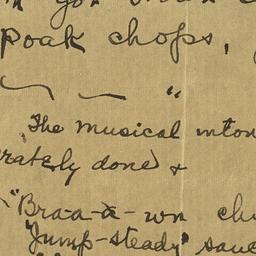 you
Poak chops,
"
The musical inton
rately done &
"Bra-a-a-wn ch
"Jump-steady" sauc